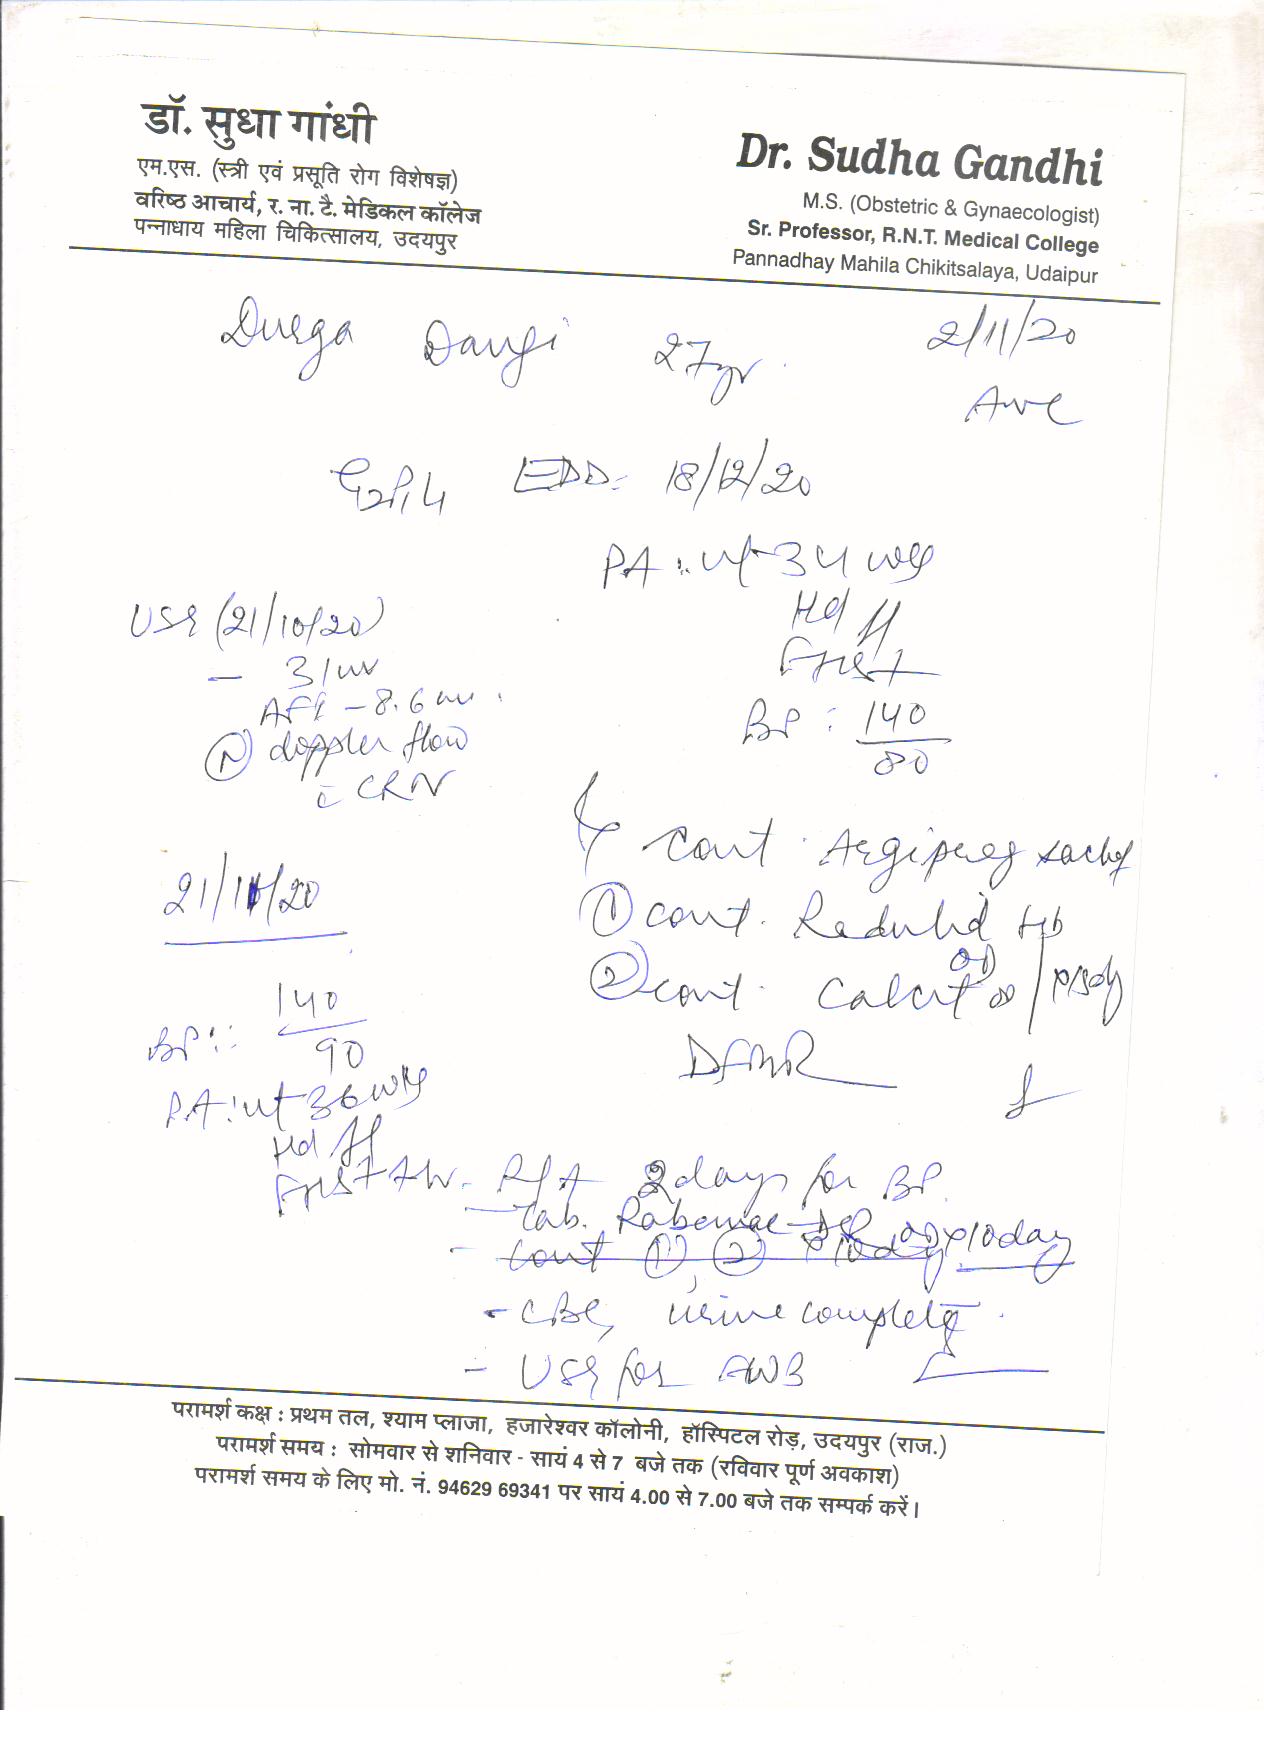 डॉ. सुधा गांधी
एम.एस. (स्त्री एवं प्रसूति रोग विशेषज्ञ)
वरिष्ठ आचार्य, र. ना. टै. मेडिकल कॉलेज
पन्नाधाय महिला चिकित्सालय, उदयपुर
Dr. Sudha Gandhi
M.S. (Obstetric & Gynaecologist)
Sr. Professor, R.N.T. Medical College
Pannadhay Mahila Chikitsalaya, Udaipur
Durga Dangi 27yr. 2/11/20
EDD- 18/12/20
PA: ut-34 wks
USG (21/10/20)
- 31 wk
AFI - 8.6 cm
(N) doppler flow
c CRN
Hd ff
FHS +
BP: 140/80
cont. Argipreg sachet
(1) cont. Redulid tab
(2) cont. Calcit OD
DFMR
21/11/20
BP: 140/90
PA: ut 36 wks
Hd ff
FHS +
- R/A 2 days for BP.
- Tab. DSR OD x 10 day
- cont (1), (2) x 10 day
- CBC, urine complete
- USG for
परामर्श कक्ष : प्रथम तल, श्याम प्लाजा, हजारेश्वर कॉलोनी, हॉस्पिटल रोड़, उदयपुर (राज.)
परामर्श समय : सोमवार से शनिवार - सायं 4 से 7 बजे तक (रविवार पूर्ण अवकाश)
परामर्श समय के लिए मो. नं. 94629 69341 पर सायं 4.00 से 7.00 बजे तक सम्पर्क करें।